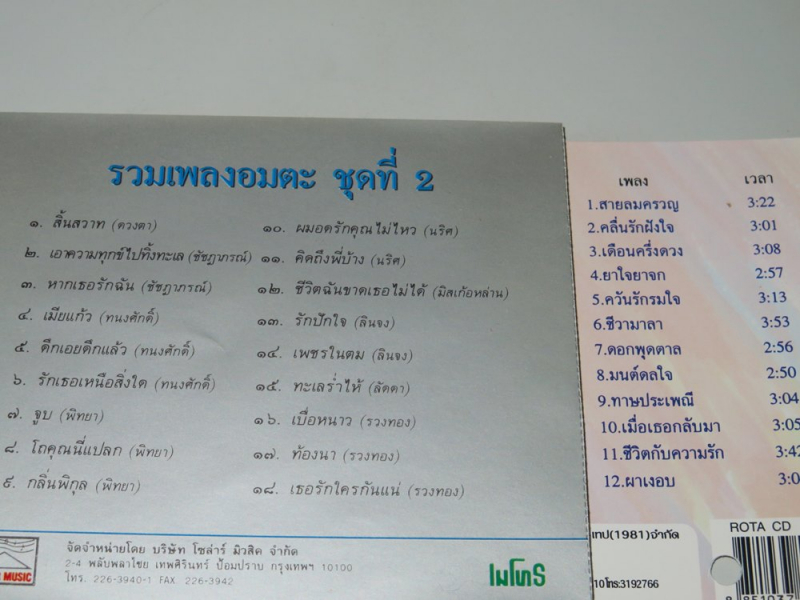 รวมเพลงอมตะ ชุดที่ 2
๑. สิ้นสวาท (ดวงตา)
๒. เอาความทุกข์ไปทิ้งทะเล (ชัชฎาภรณ์)
๓. หากเธอรักฉัน (ชัชฎาภรณ์)
๔. เมียแก้ว (ทนงศักดิ์)
๕. ดึกเอยดึกแล้ว (ทนงศักดิ์)
๖. รักเธอเหนือสิ่งใด (ทนงศักดิ์)
๗. จูบ (พิทยา)
๘. โถคุณนี่แปลก (พิทยา)
๙. กลิ่นพิกุล (พิทยา)
๑๐. ผมอดรักคุณไม่ไหว (นริศ)
๑๑. คิดถึงพี่บ้าง (นริศ)
๑๒. ชีวิตฉันขาดเธอไม่ได้ (มิสเก้อหล่าน)
๑๓. รักปักใจ (ลินจง)
๑๔. เพชรในตม (ลินจง)
๑๕. ทะเลร่ำไห้ (ลัดดา)
๑๖. เบื่อหนาว (รวงทอง)
๑๗. ท้องนา (รวงทอง)
๑๘. เธอรักใครกันแน่ (รวงทอง)
MUSIC
จัดจำหน่ายโดย บริษัท โซล่าร์ มิวสิค จำกัด
2-4 พลับพลาไชย เทพศิรินทร์ ป้อมปราบ กรุงเทพฯ 10100
โทร. 226-3940-1 FAX. 226-3942
เมโทร
เพลง เวลา
1.สายลมครวญ 3:22
2.คลื่นรักฝังใจ 3:01
3.เดือนครึ่งดวง 3:08
4.ยาใจยาจก 2:57
5.ควันรักรมใจ 3:13
6.ชีวามาลา 3:53
7.ดอกพุดตาล 2:56
8.มนต์ดลใจ 2:50
9.ทาษประเพณี 3:04
10.เมื่อเธอกลับมา 3:05
11.ชีวิตกับความรัก 3:42
12.ผาเงอบ 3:0
เทป(1981)จำกัด
10โทร:3192766
ROTA CD
8 851037